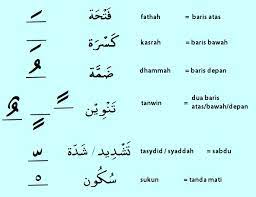 فَتْحَة fathah = baris atas
كَسْرَة kasrah = baris bawah
ضَمَّة dhammah = baris depan
تَنْوِيْن tanwin = dua baris atas/bawah/depan
تَشْدِيد / شَدَّة tasydid / syaddah = sabdu
سُكُون sukun = tanda mati